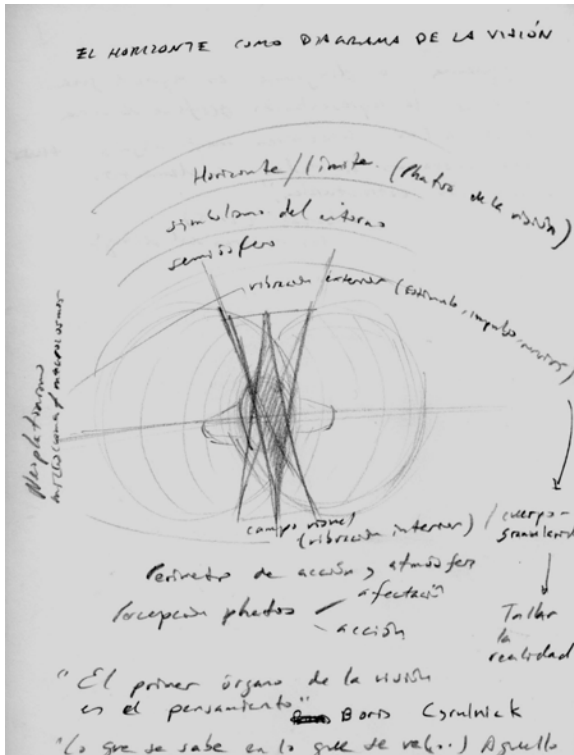 EL HORIZONTE COMO DIAGRAMA DE LA VISIÓN
Horizonte/límite. (Phatos de la visión)
simbolismo del entorno
semiósfera
vibración exterior (Estímulo, impulso, nervios)
Neoplatonismo
microcosmos/macrocosmos
campo visual
(vibración interior) / cuerpo-
granulerid
Perímetro de acción y atmósfera
Percepción phatos
afectación
acción
Tallar
la
realidad
"El primer órgano de la visión
es el pensamiento" Boris Cyrulnick
"Lo que se sabe en lo que se ve(...) Aquello